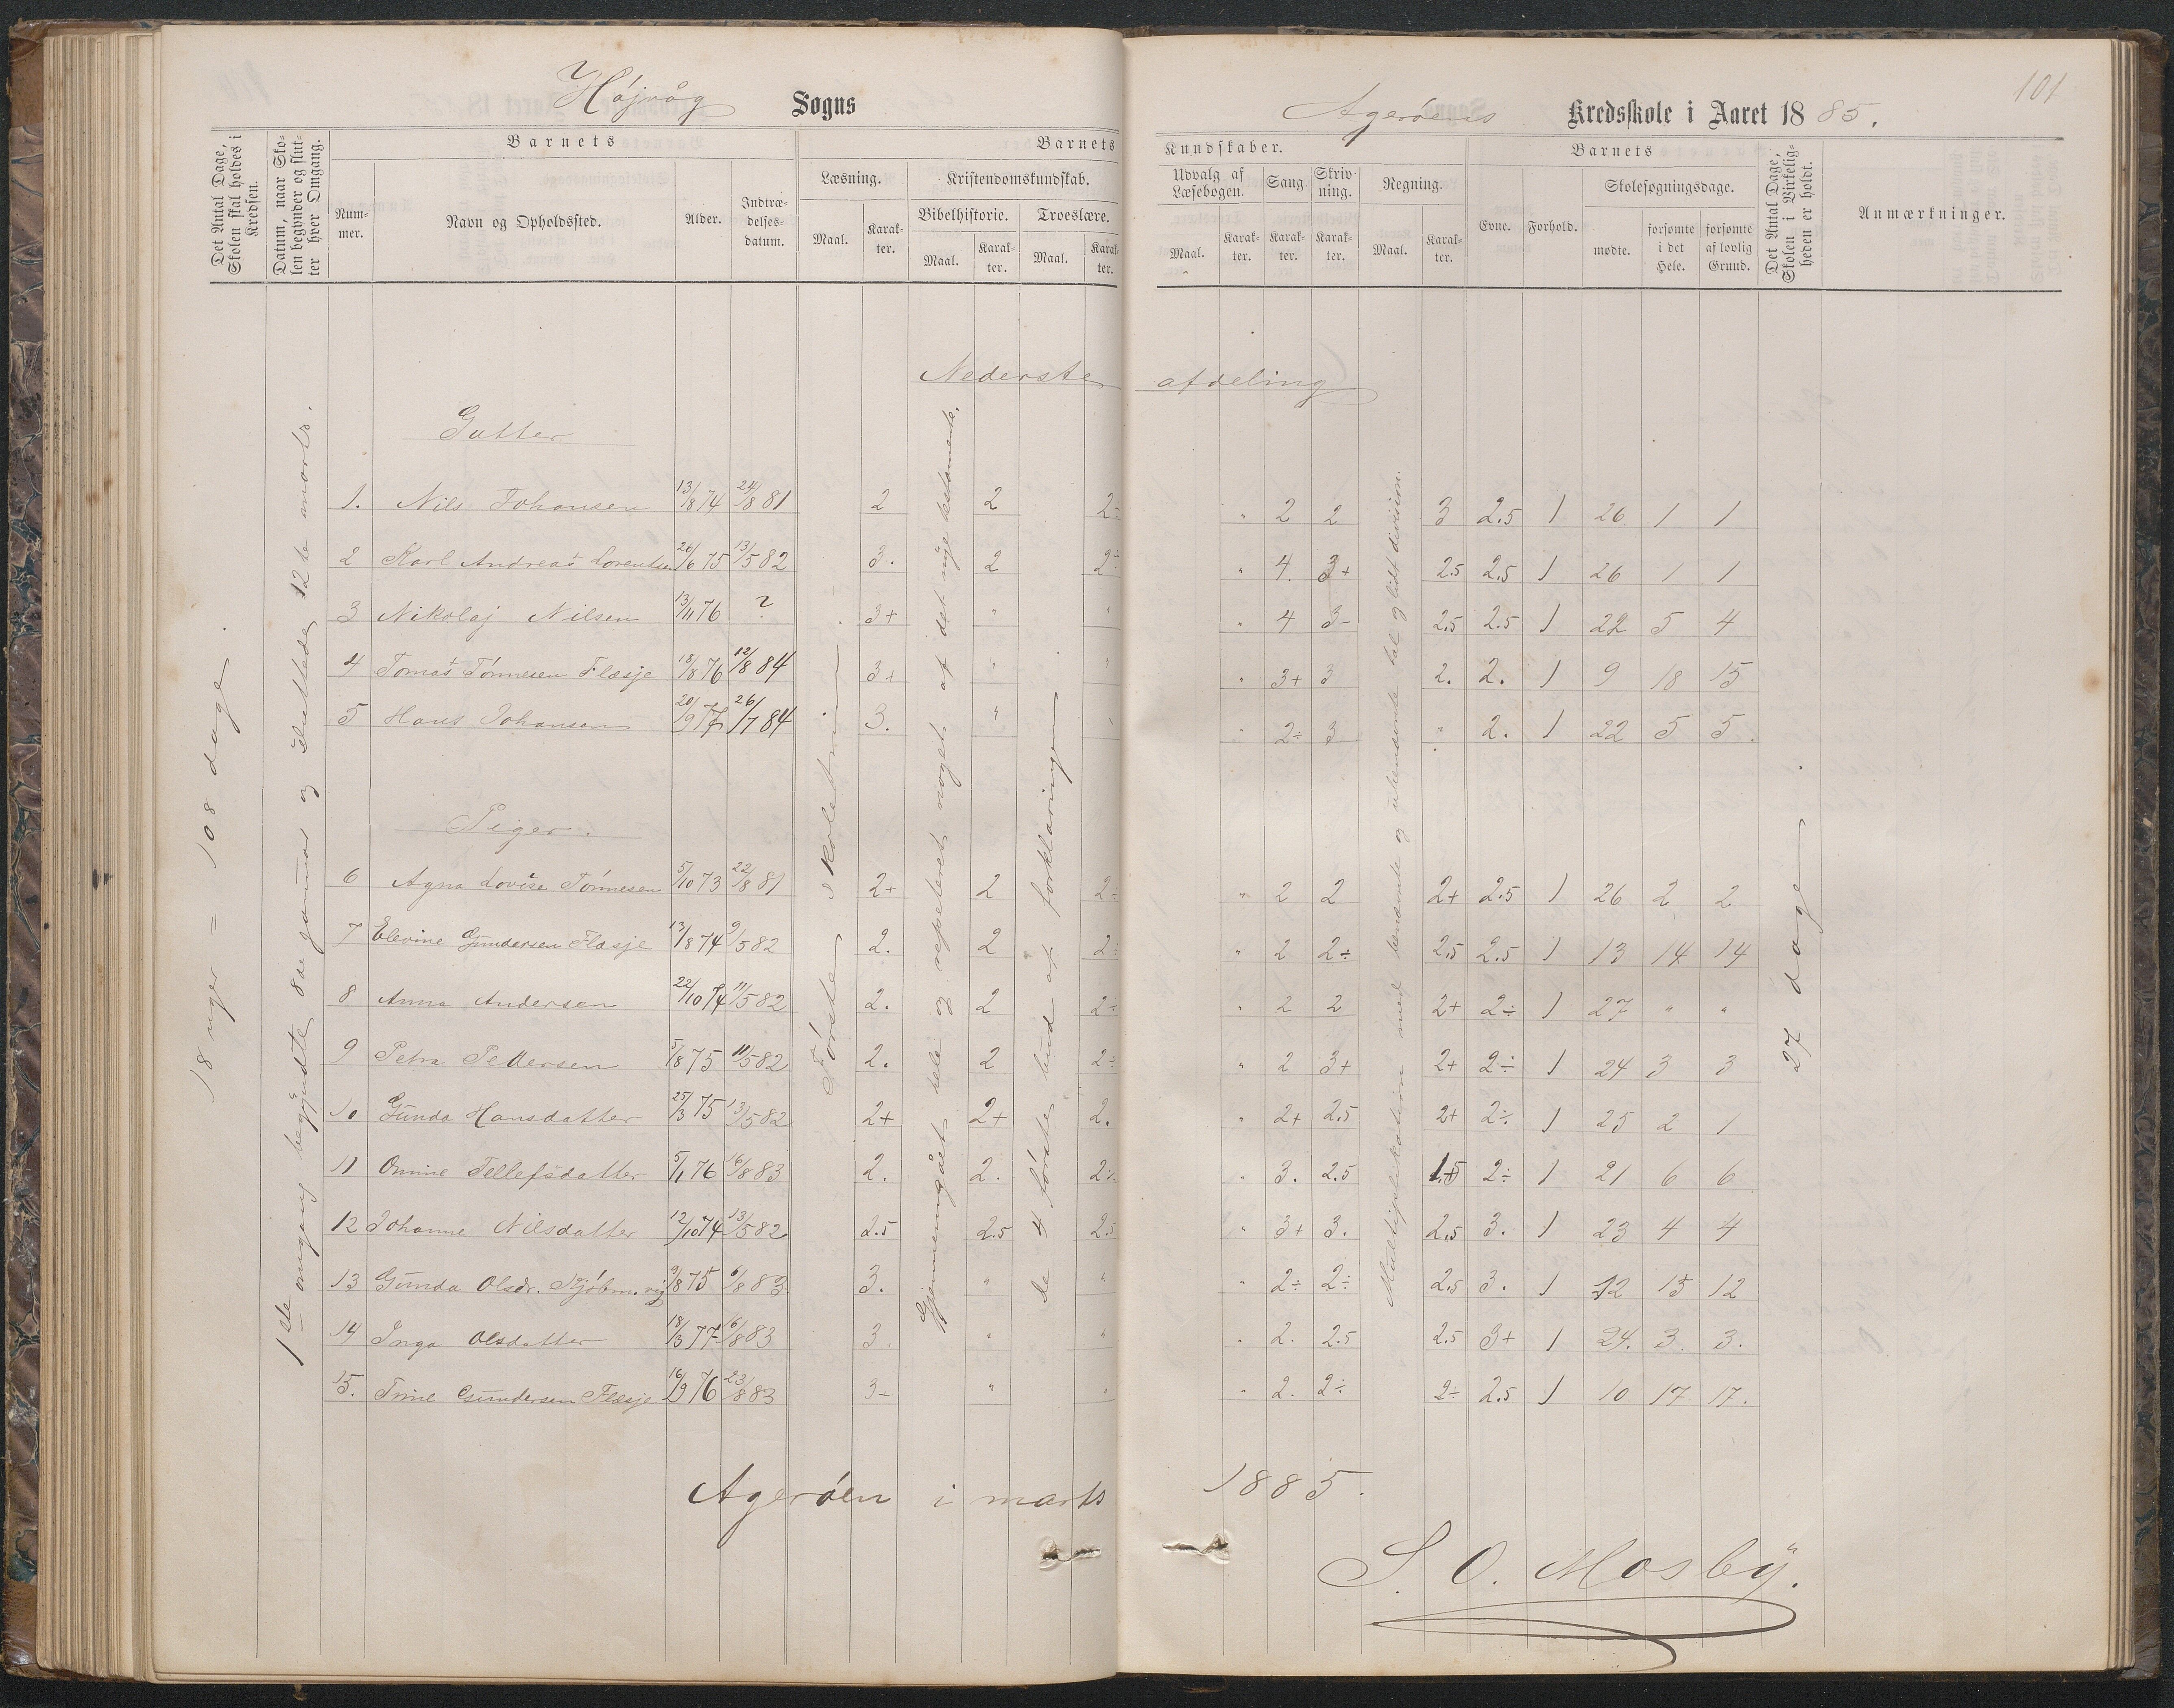 Højvåg Sogns
Agerøens Kredsskole i Aaret 1885.
101
Det Antal Dage, Skolen skal holdes i Kredsen.
Datum, naar Skolen begynder og slutter hver Omgang.
Barnets
Nummer.
Navn og Opholdssted.
Alder.
Indtrædelsesdatum.
Barnets
Læsning.
Maal.
Karakter.
Kristendomskundskab.
Bibelhistorie.
Maal.
Karakter.
Troeslære.
Maal.
Karakter.
Kundskaber.
Udvalg af Læsebogen.
Maal.
Karakter.
Sang
Karakter.
Skrivning.
Karakter.
Regning.
Maal.
Karakter.
Barnets
Evne.
Forhold.
Skolesøgningsdage.
mødte.
forsømte i det Hele.
forsømte af lovlig Grund.
Det Antal Dage, Skolen i Virkeligheden er holdt.
Anmærkninger.
Nederste afdeling
18 uger = 108 dage.
1ste omgang begyndte 8de januar og sluttede 12te marts.
Første skoletrin
Gjennemgået hele og repeteret noget af det nye testamente.
De 4 første bud af forklaringen.
Multiplikation med benævnte og ubenævnte tal og lidt division.
27 dage.
Gutter
1. Nils Johansen 13/8 74 24/8 81 2 2 2÷ " 2 2 3 2.5 1 26 1 1
2 Karl Andreas Lorentsen 26/6 75 13/5 82 3. 2 2÷ " 4. 3+ 2.5 2.5 1 26 1 1
3 Nikolaj Nilsen 13/11 76 ? 3+ " " " 4 3- 2.5 2.5 1 22 5 4
4 Tomas Tønnesen Flæsje 18/8 76 12/8 84 3+ " " " 3+ 3 2. 2. 1 9 18 15
5 Hans Johansen 20/9 77 26/7 84 3. " " " 2÷ 3 " 2. 1 22 5 5.
Piger.
6 Agna Lovise Tønnesen 5/10 73 22/8 81 2+ 2 2÷ " 2 2 2+ 2.5 1 26 2 2
7 Elevine Gundersen Flæsje 13/8 74 9/5 82 2. 2 2÷ " 2 2÷ 2.5 2.5 1 13 14 14
8 Anna Andersen 22/10 74 11/5 82 2. 2 2÷ " 2 2 2+ 2÷ 1 27 " "
9 Petra Pettersen 5/8 75 11/5 82 2. 2 2÷ " 2 3+ 2+ 2÷ 1 24 3 3
10 Gunda Hansdatter 25/3 75 13/5 82 2+ 2+ 2. " 2+ 2.5 2+ 2÷ 1 25 2 1
11 Omine Tellefsdatter 5/1 76 16/8 83 2. 2. 2÷ " 3. 2.5 1.5 2÷ 1 21 6 6
12 Johanne Nilsdatter 12/10 74 13/5 82 2.5 2.5 2.5 " 3+ 3. 2.5 3. 1 23 4 4
13 Gunda Olsdr. Kjøbm.vig 9/8 75 6/8 83. 3. " " " 2÷ 2÷ 2.5 3. 1 12 15 12
14 Inga Olsdatter 18/3 77 16/8 83 3. " " " 2. 2.5 2.5 3+ 1 24. 3. 3.
15. Trine Gundersen Flæsje 16/9 76 23/8 83 3- " " " 2. 2÷ 2÷ 2.5 1 10 17 17.
Agerøen i marts 1885.
S. O. Mosby.